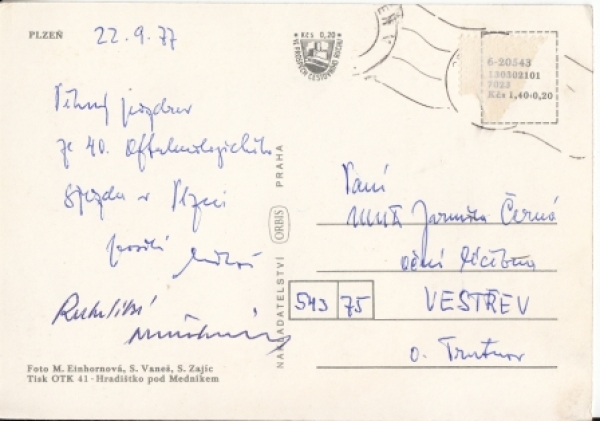 PLZEŇ
22.9.77
Kčs 0,20
VE PROSPĚCH CESTOVNÍHO RUCHU
6-20543
130302101
7023
Kčs 1,40+0,20
Věrný pozdrav
ze 40. Oftalmologického
sjezdu v Plzni
posílá
Ruku líbá
Paní
MUDr Jarmila Černá
oční léčebna
543 75
VESTŘEV
o. Trutnov
NAKLADATELSTVÍ ORBIS PRAHA
Foto M. Einhornová, S. Vaneš, S. Zajíc
Tisk OTK 41 - Hradištko pod Medníkem